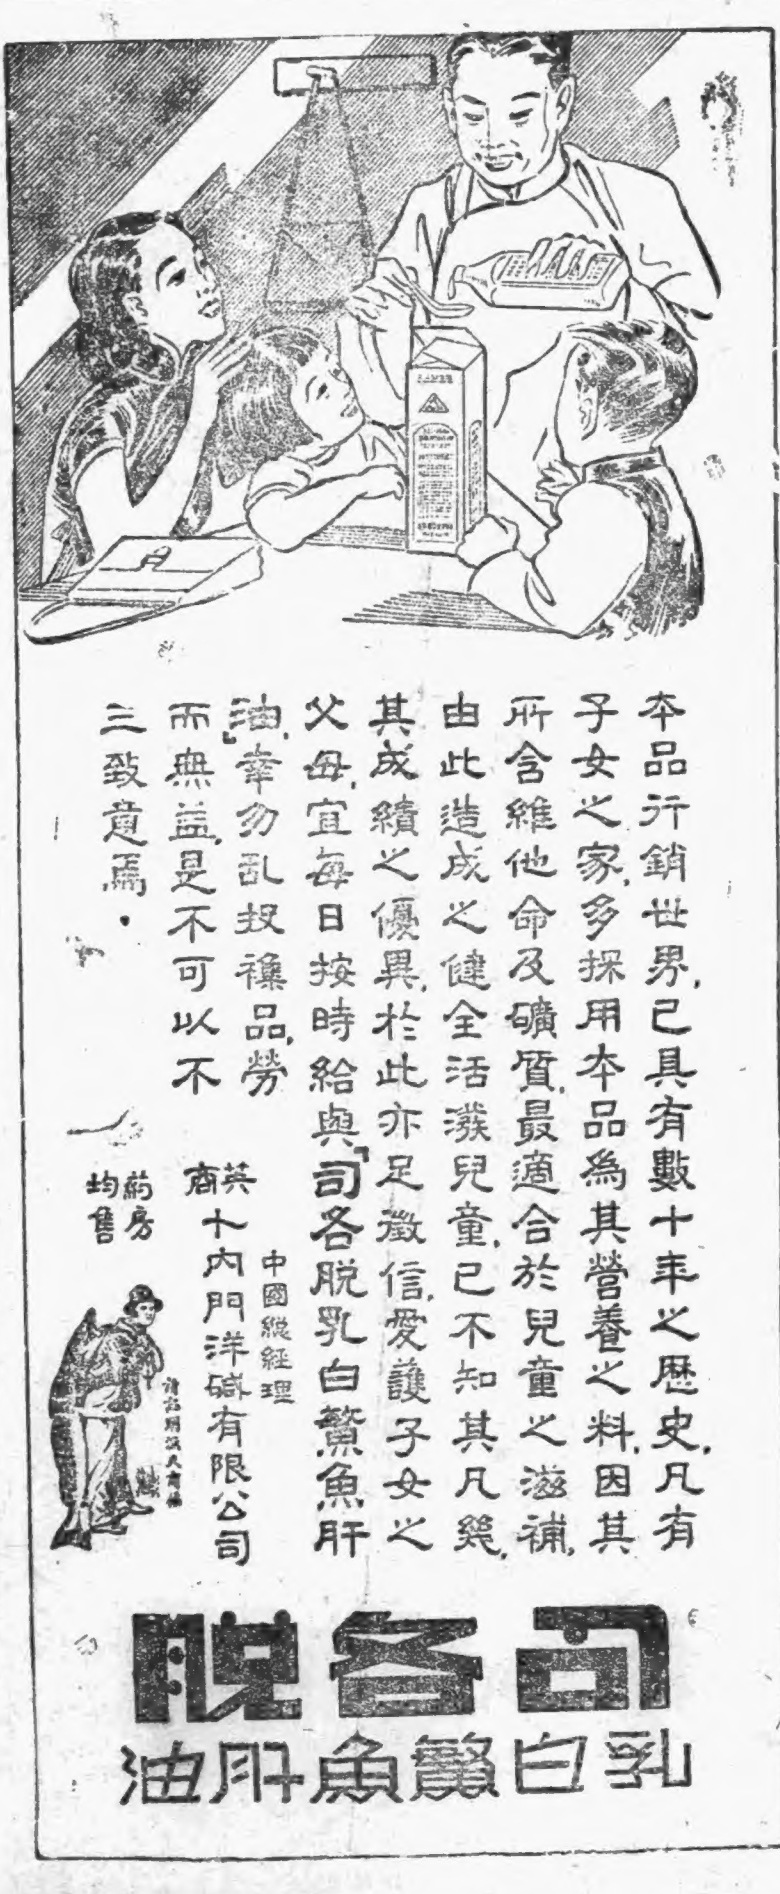 本品行銷世界,已具有數十年之歷史,凡有
子女之家,多採用本品為其營養之料,因其
所含維他命及礦質,最適合於兒童之滋補,
由此造成之健全活潑兒童,已不知其凡幾,
其成績之優異,於此亦足徵信,愛護子女之
父母,宜每日按時給與「司各脫乳白鰵魚肝
油」,幸勿乱投襍品,勞
而無益,是不可以不
三致意焉.
中國總經理
英商卜內門洋碱有限公司
葯房均售
司各脫
乳白鰵魚肝油